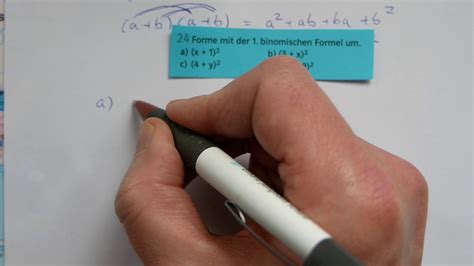 (a+b)(a+b) = a² + ab + ba + b²
24 Forme mit der 1. binomischen Formel um.
a) (x + 1)² b) (7 + x)²
c) (4 + y)² )²
a)